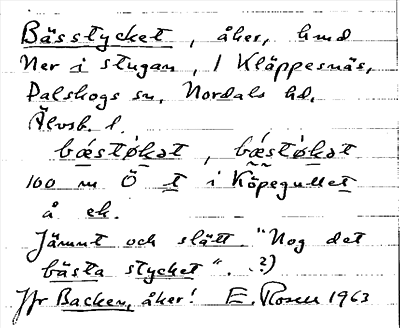 Bässtycket, åker, hmd
Ner i stugan, 1 Kläppesnäs,
Dalskogs sn, Nordals hd,
Älvsb. l.
bǽstø̀kət, bǽstø̀kət
100 m Ö t i Köpegullet
å ek.
Jämnt och slätt "Nog det
bästa stycket". ?)
Jfr Backen, åker! E. Rosell 1963